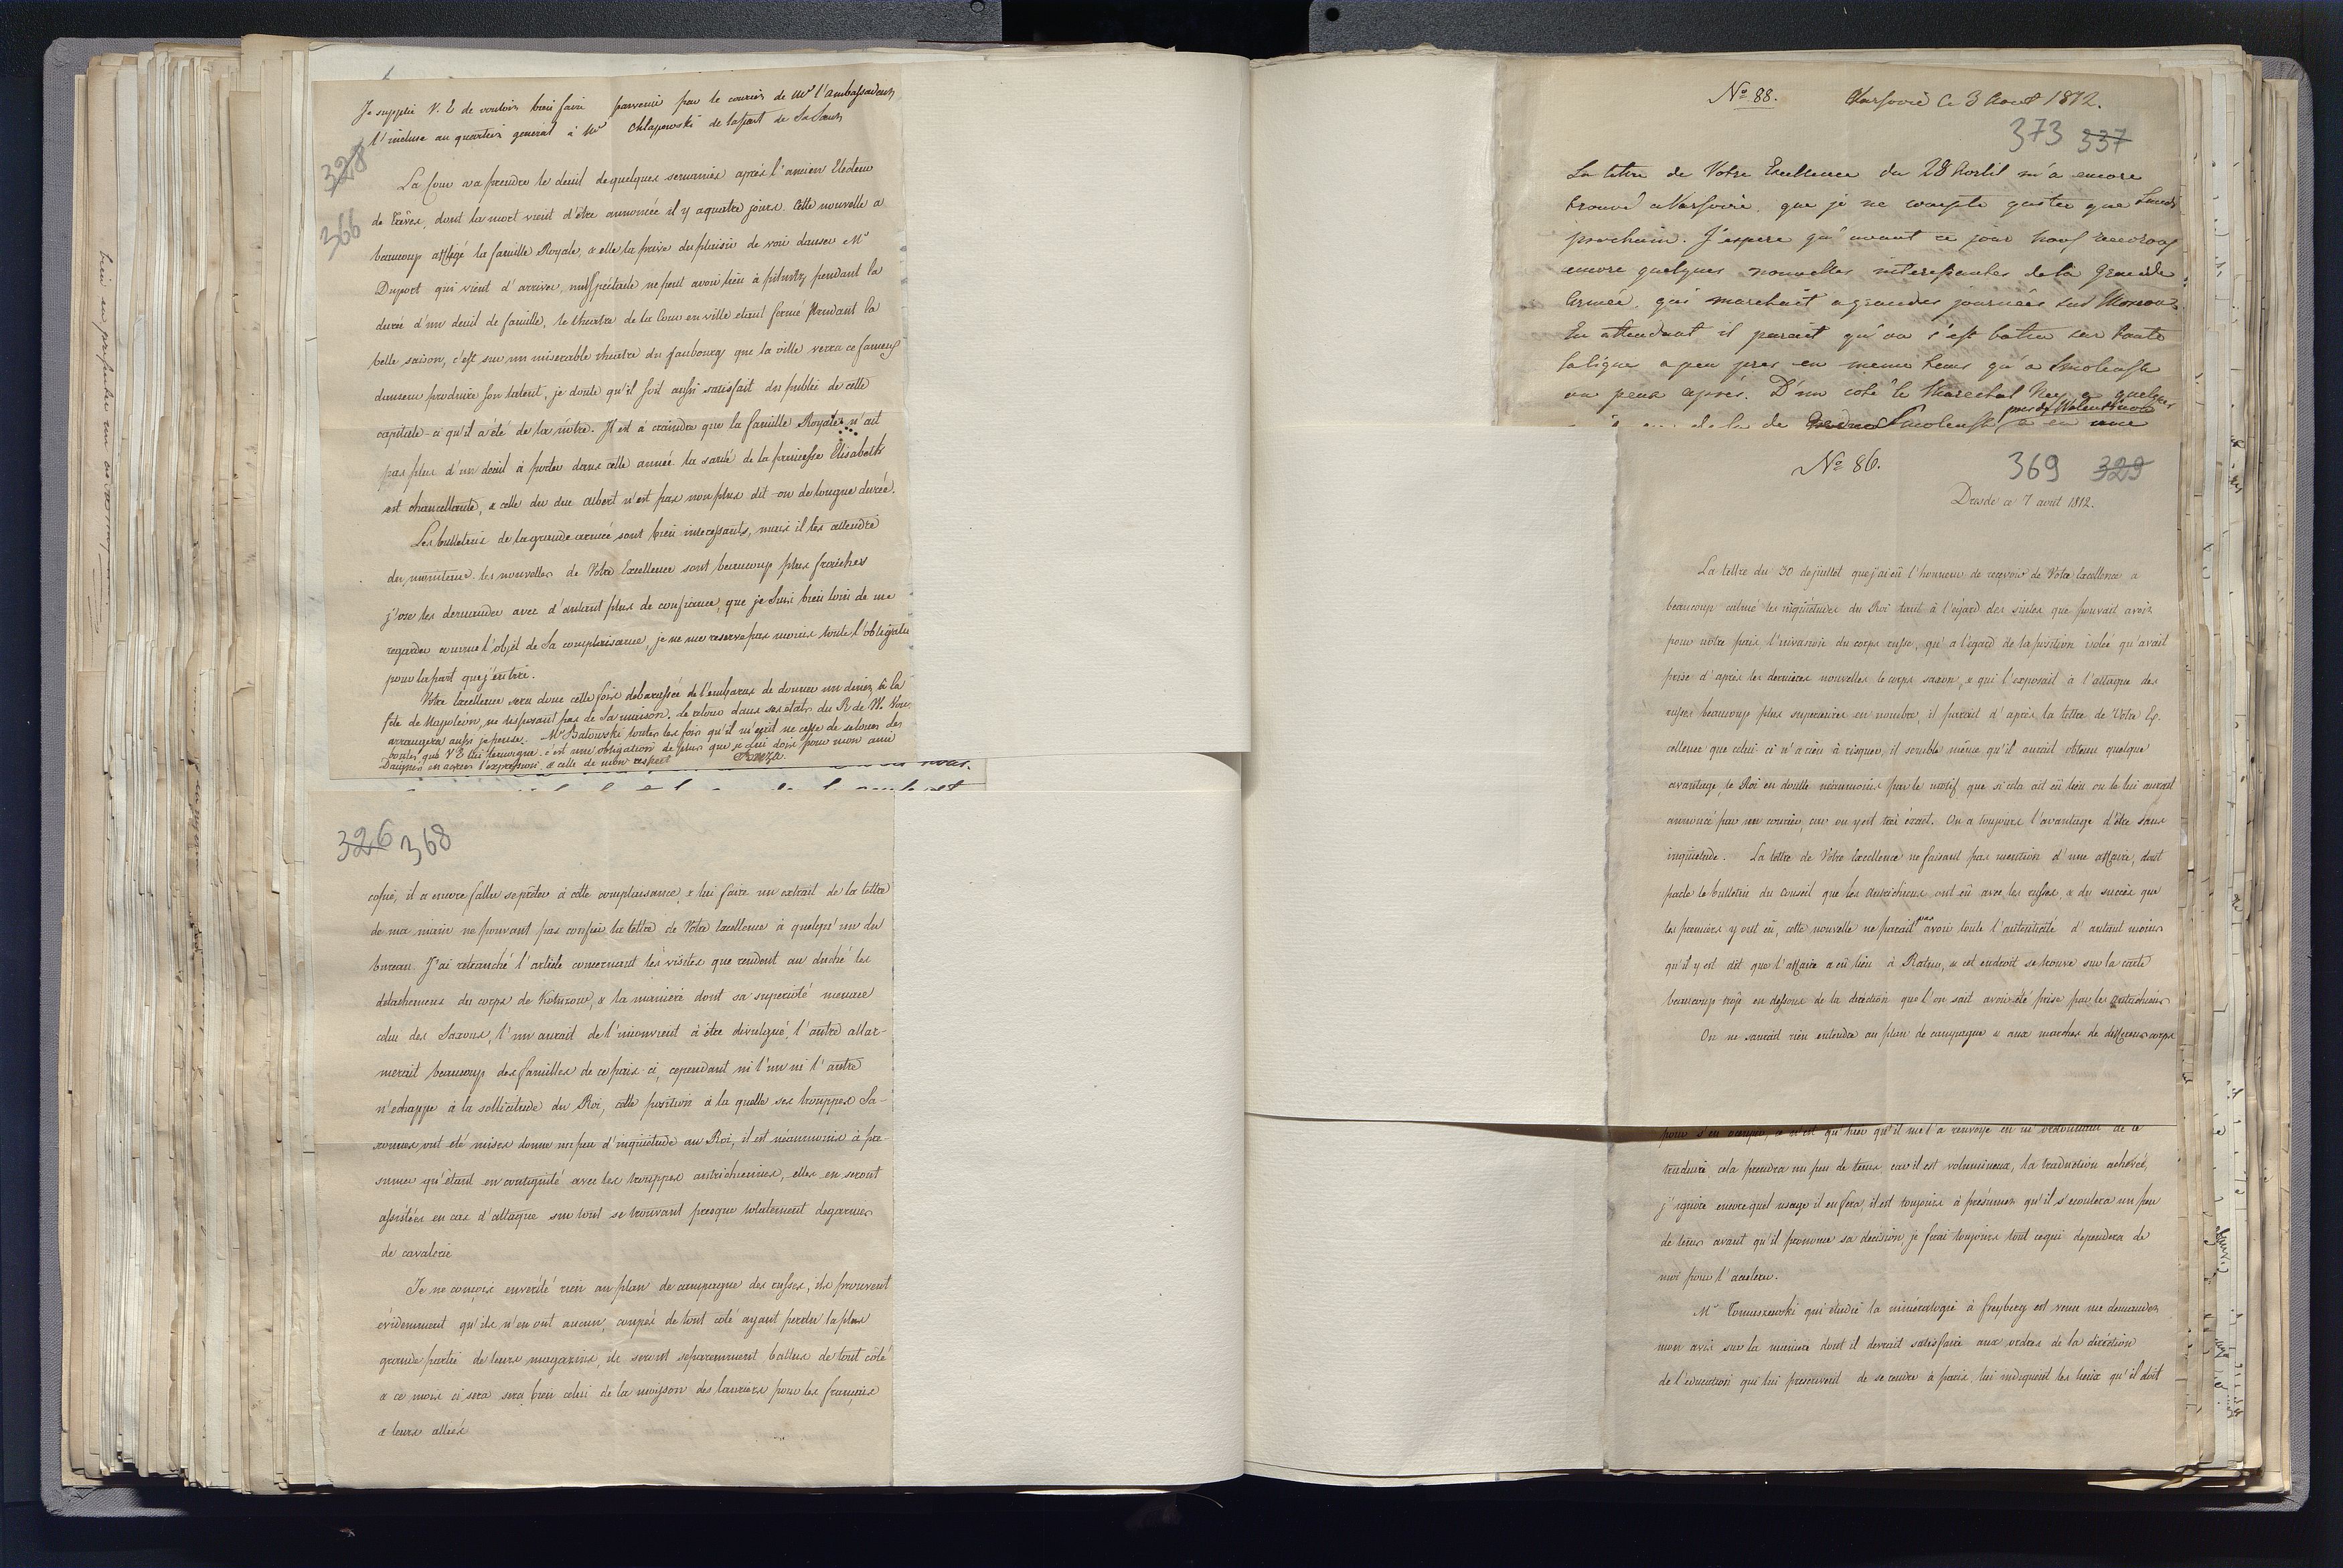 Je supplie V. E de vouloir bien faire parvenir par le courier de Mr l'ambassadeur
l'incluse au quartier general à Mr Chlapowski de la part de Sa Soeur
328
366
La Cour va prendre le deuil de quelques semaines après l'ancien Electeur
de Trêves, dont la mort vient d'être annoncée il y a quatre jours. Cette nouvelle a
beaucoup affligé la famille Royale, & elle la prive du plaisir de voir danser Mr
Duport qui vient d'arriver, nul spectacle ne peut avoir lieu à pilnitz pendant la
durée d'un deuil de famille, le theatre de la Cour en ville etant fermé pendant la
belle saison, c'est sur un miserable theatre du faubourg que la ville verra ce fameux
danseur produire son talent, je doute qu'il soit aussi satisfait du public de cette
capitale-ci qu'il a été de la nôtre. Il est à craindre que la famille Royale n'ait
pas plus d'un deuil à porter dans cette année. la santé de la princesse Elisabeth
est chancellante, & celle du duc albert n'est pas non plus dit-on de longue durée.
Les bulletins de la grande armée sont bien interessants, mais il les attendre
du moniteur. les nouvelles de Votre Excellence sont beaucoup plus fraiches
j'ose les demander avec d'autant plus de confiance, que je suis bien loin de me
regarder comme l'objet de Sa complaisance, je ne me reserve pas moins toute l'obligation
pour la part que j'en tire.
Votre Excellence sera donc cette fois debarassée de l'embaras de donner un diner à la
fête de Napoleon, ne disposant pas de Sa maison. le retour dans ses etats du R de W. Vous
arrangera aussi je pense. Mr Batowski toutes les fois qu'il m'ecrit ne cesse de se louer des
bontés que V E lui temoigne. c'est une obligation de plus que je Lui dois pour mon ami
Daignez en agréer l'expression & celle de mon respect
326 368
copie, il a encore fallu se prêter à cette complaisance, & lui faire un extrait de la lettre
de ma main ne pouvant pas confier la lettre de Votre Excellence à quelqu'un du
bureau. J'ai retranché l'article concernant les visites que rendent au duché les
detachemens du corps de Kotuzow, & la maniere dont sa superiorité menace
celui des Saxons, l'un aurait de l'inconvenient à être divulgué, l'autre allar-
merait beaucoup des familles de ce païs-ci, cependant ni l'un ni l'autre
n'echappe à la sollicitude du Roi, cette position à la quelle ses trouppes Sa-
xonnes ont été mises donne un peu d'inquietude au Roi, il est néanmoins à pre-
sumer qu'étant en contiguité avec les trouppes autrichiennes, elles en seront
assistées en cas d'attaque sur tout se trouvant presque totalement degarnies
de cavalerie
Je ne conçois en verité rien au plan de campagne des russes, ils prouvent
évidemment qu'ils n'en ont aucun, coupés de tout coté ayant perdu la plus
grande partie de leurs magazins, ils seront separemment battus de tout côté
& ce mois ci sera sera bien celui de la moisson des lauriers pour les français
& leurs alliés
No 88. Varsovie ce 3 Aout 1812.
373 337
La lettre de Votre Excellence du 28 m'a encore
trouvé a Varsovie, que je ne compte quitter que Lundi
prochain. J'espere qu'avant ce jour nous recevrons
encore quelques nouvelles interessantes de la Grande
Armée, qui marchait a grandes journées sur Moscou.
En attendant il parait qu'on s'est battu sur toute
la ligne a peu pres en meme tems qu'a Smolensk
ou peu après. D'un coté le Marechal Ney a quelques
de la de Smolensk
No 86. 369 329
Dresde ce 7 août 1812.
La lettre du 30 de juillet que j'ai eü l'honneur de recevoir de Votre Excellence a
beaucoup calmé les inquiétudes du Roi tant à l'égard des suites que pouvait avoir
pour nôtre païs l'invasion du corps russe, qu'a l'égard de la position isolée qu'avait
prise d'après les dernières nouvelles le corps saxon, & qui l'exposait à l'attaque des
russes beaucoup plus superieurs en nombre, il parait d'après la lettre de Votre Ex-
cellence que celui ci n'a rien à risquer, il semble même qu'il aurait obtenu quelque
avantage, le Roi en doutte néanmoins par le motif que si cela ait eü lieu on le lui aurait
annoncé par un courier, car on y est très exact. On a toujours l'avantage d'être sans
inquietude. La lettre de Votre Excellence ne faisant pas mention d'une affaire, dont
parle le bulletin du conseil que les autrichiens ont eü avec les russes, & du succès que
les premiers y ont eü, cette nouvelle ne parait pas avoir toute l'autenticité d'autant moins
qu'il y est dit que l'affaire a eü lieu à Ratno, & cet endroit se trouve sur la carte
beaucoup trop en dessous de la direction que l'on sait avoir été prise par les autrichiens
On ne saurait rien entendre au plan de campagne & aux marches de differens corps
pour s'en occuper, ce n'est qu'hier qu'il me l'a renvoyé en m'ordonnant de le
traduire, cela prendra un peu de tems, car il est volumineux, la traduction achevée,
j'ignore encore quel usage il en fera, il est toujours à présumer qu'il s'ecoulera un peu
de tems avant qu'il prononce sa decision je ferai toujours tout ce qui dependera de
moi pour l'accelerer.
Mr Tomaszewski qui étudie la minéralogie à freyberg est venu me demander
mon avis sur la maniere dont il devrait satisfaire aux ordres de la diréction
de l'education qui lui prescrivent de se rendre à paris, lui indiquent les lieux qu'il doit